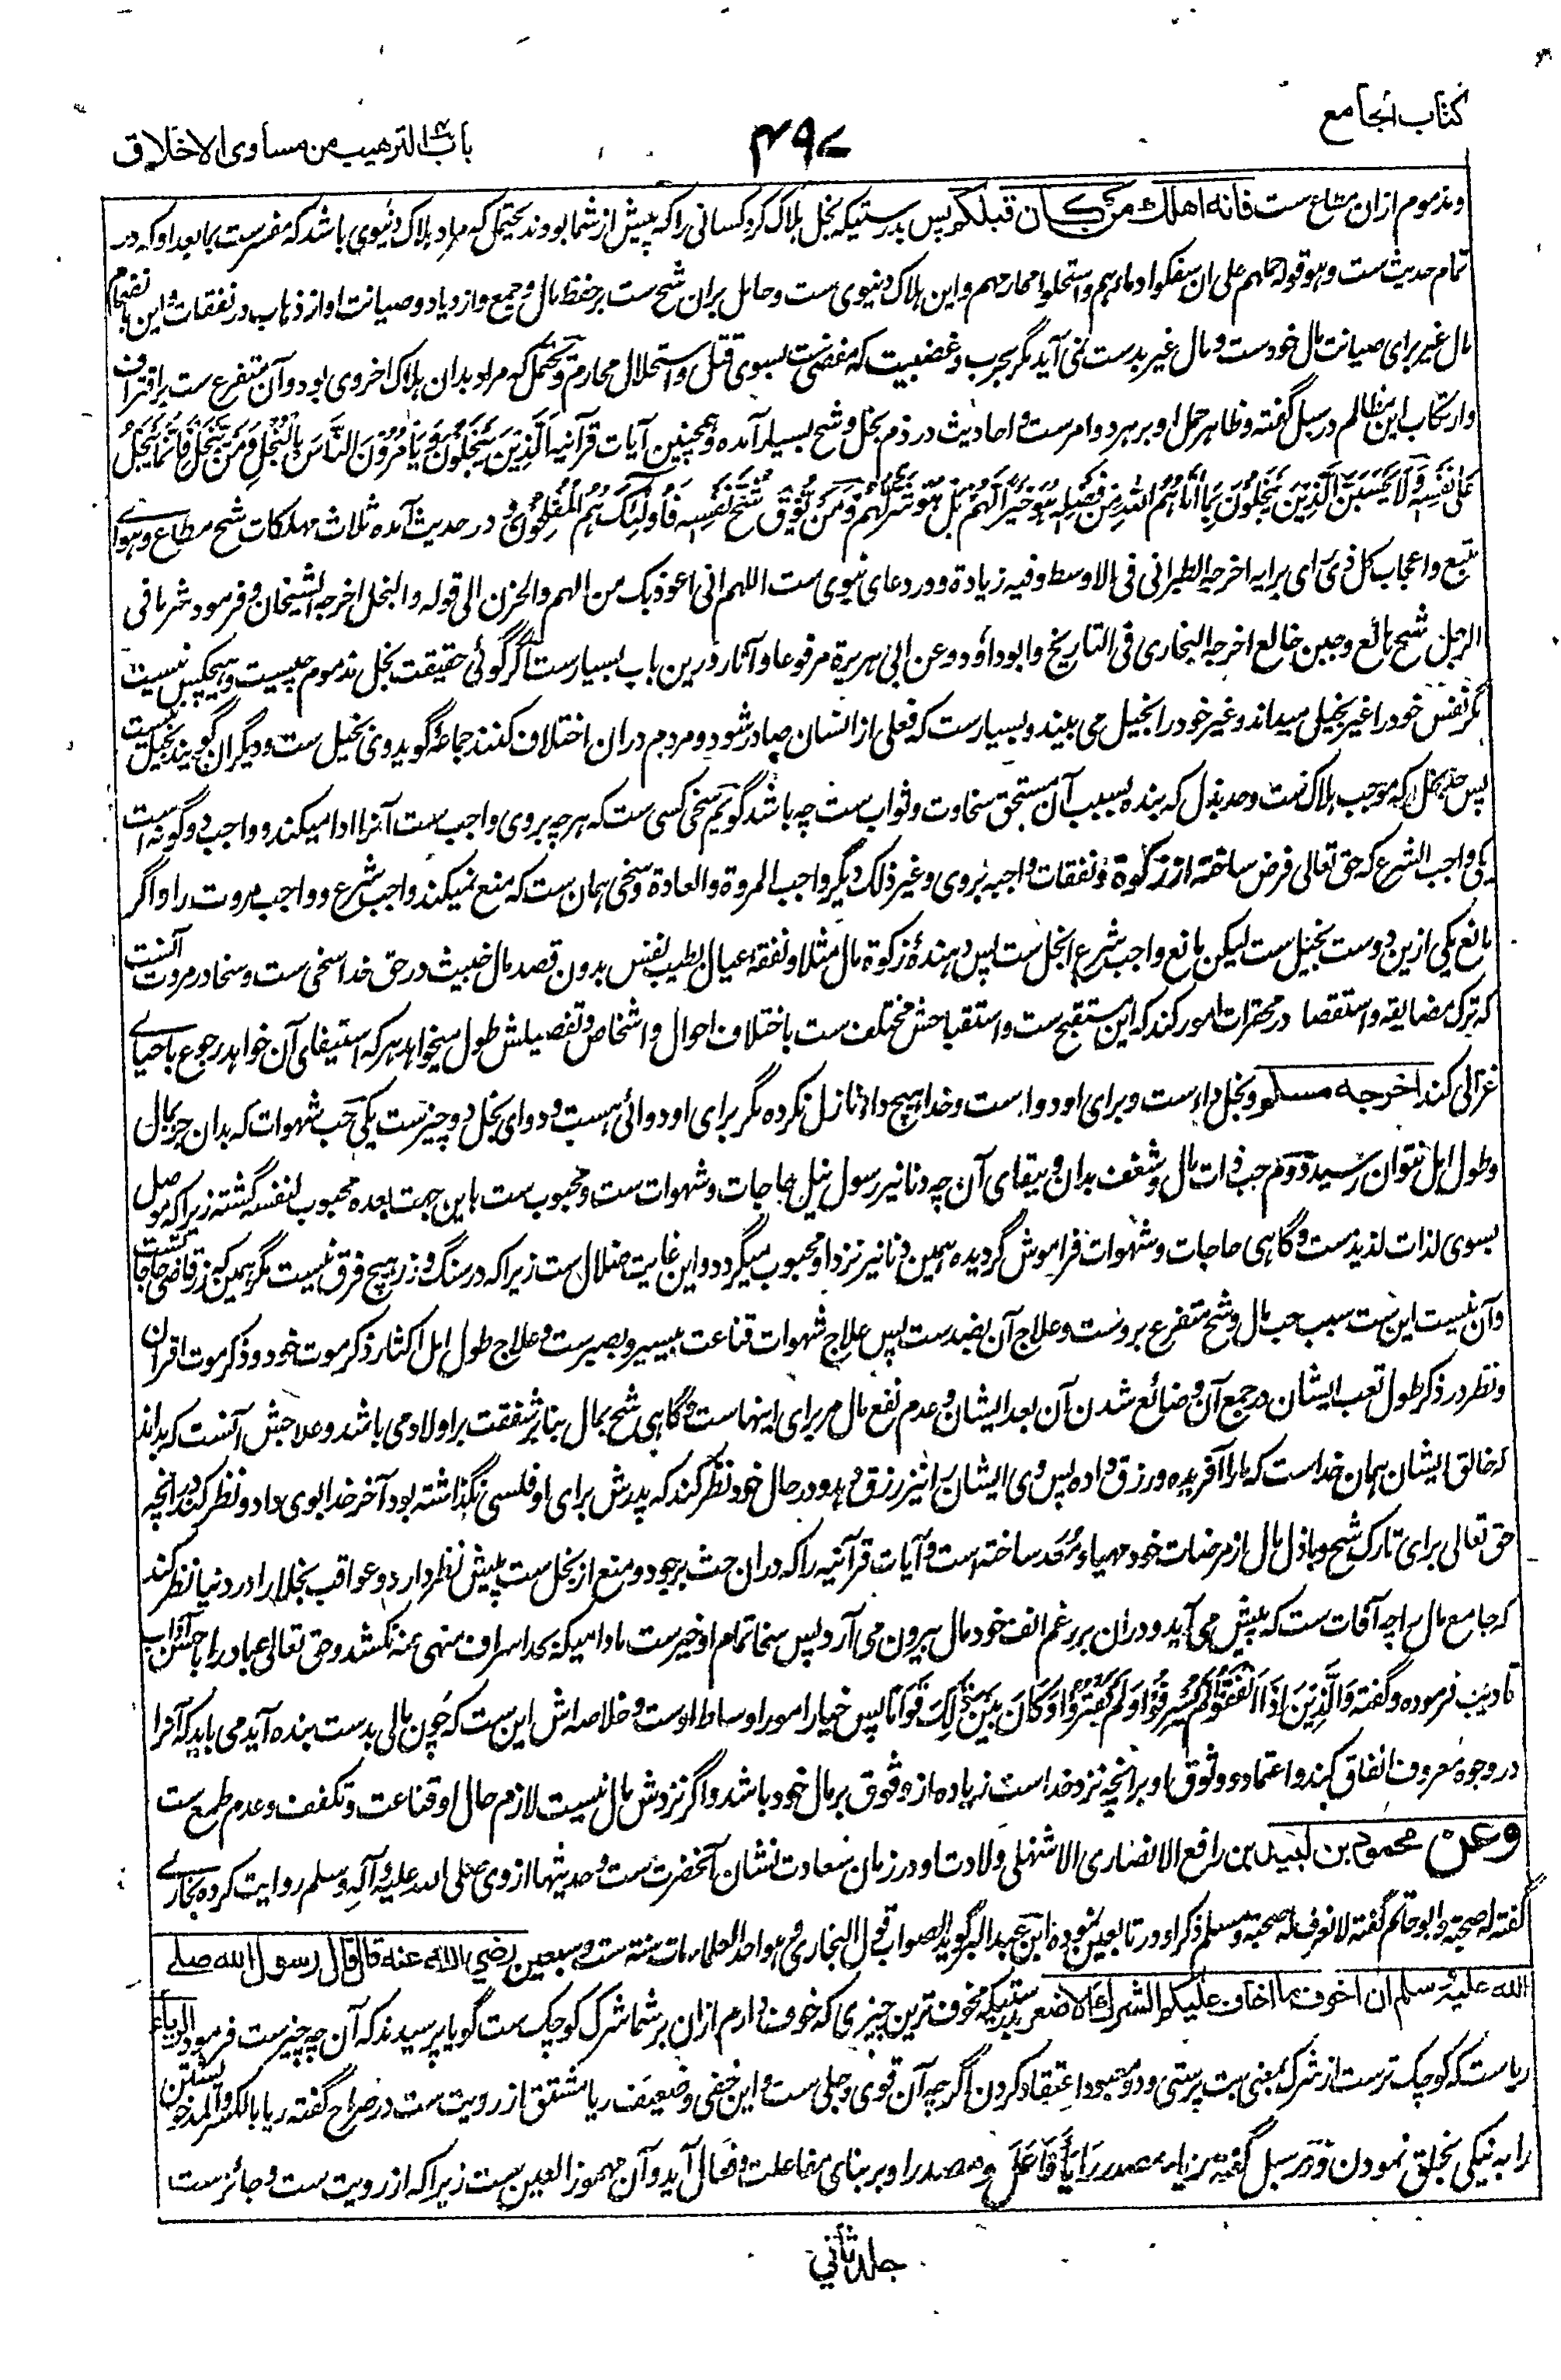 کتاب الجامع
۴۹۷
باب الترهیب من مساوی الاخلاق
ومذموم ازان مشاع ست فانه اهلك من كان قبلكم پس بدرستیکه بخل ہلاک کرد کسانی را که پیش از شما بودند یحتمل که مراد ہلاک دنیوی باشد که مفسرست بما بعد او که در
تمام حدیث ست وہو قوله حملهم علی ان سفکوا دماءہم واستحلوا محارمہم واین ہلاک دنیوی ست وحامل بران شح ست بر حفظ مال وجمع وازدیاد وصیانت او از ذہاب در نفقات واین
مال غیر برای صیانت مال خودست ومال غیر بدست نمی آید مگر بحرب وغضبیت که مفضی ست بسوی قتل واستحلال محارم ویحتمل که مراد بدان ہلاک اخروی بود وآن متفرع ست بر اقتراف
وارتکاب این مظالم در سبل گفته وظاہر حمل او بر ہر دو امرست واحادیث در ذم بخل وشح بسیار آمده وہمچنین آیات قرآنیه اَلَّذِیْنَ یَبْخَلُوْنَ وَیَأْمُرُوْنَ النَّاسَ بِالْبُخْلِ وَمَنْ یَّبْخَلْ فَاِنَّمَا یَبْخَلُ
عَلٰی نَفْسِهٖ وَلَا یَحْسَبَنَّ الَّذِیْنَ یَبْخَلُوْنَ بِمَا اٰتَاهُمُ اللّٰهُ مِنْ فَضْلِهٖ هُوَ خَیْرًا لَّهُمْ بَلْ هُوَ شَرٌّ لَّهُمْ وَمَنْ یُّوْقَ شُحَّ نَفْسِهٖ فَاُولٰٓئِکَ هُمُ الْمُفْلِحُوْنَ ودر حدیث آمده ثلاث مہلکات شح مطاع وہوا
متبع واعجاب کل ذی رای برایه اخرجه الطبرانی فی الاوسط وفیه زیادة ودر دعای نبوی ست اللہم انی اعوذبک من الہم والحزن الی قوله والبخل اخرجه الشیخان وفرمود شر ما فی
الرجل شح ہالع وجبن خالع اخرجه البخاری فی التاریخ وابوداؤد عن ابی ہریرة مرفوعا وآثار درین باب بسیارست اگر گوئی حقیقت بخل مذموم چیست وہیچکس نیست
مگر نفس خود را غیر بخیل میداند وغیر خود را بخیل می بیند وبسیارست که فعلی از انسان صادر شود ومردم دران اختلاف کنند جماعه گوید وی بخیل ست ودیگران گویند بخیل نیست
پس حد بخل که موجب ہلاک ست وحد بذل که بنده بسبب آن مستحق سخاوت وثواب ست چه باشد گویم سخی کسی ست که ہرچه بروی واجب ست آنرا ادا میکند وواجب دوگونه است
یکی واجب الشرع که حق تعالی فرض ساخته از زکوة ونفقات واجبه بروی وغیر ذلک دیگر واجب المروة والعادة وسخی ہمان ست که منع نمیکند واجب شرع وواجب مروت را واگر
مانع یکی ازین دوست بخیل ست لیکن مانع واجب شرع ابخل ست پس دہندۂ زکوة مال مثلا ونفقۂ عیال بطیب نفس بدون قصد مال خبیث در حق خدا سخی ست وسخا در مروت آنست
که ترک مضایقه واستقصا در محقرات امور کند که این مستقبح ست واستقباحش مختلف ست باختلاف احوال واشخاص وتفصیلش طول میخواہد ہر که استیفای آن خواہد رجوع باحیای
غزالی کند اخرجه مسلم وبخل داءست وبرای او دواست وخدا ہیچ داء نازل نکرده مگر برای او دوائی ہست ودوای بخل دو چیزست یکی حب شہوات که بدان جز بمال
وطول امل نتوان رسید دوم حب ذات مال وشغف بدان وببقای آن چه دنانیر رسول نیل حاجات وشہوات ست ومحبوب ست باین جہت بعده محبوب لنفسه گشته زیرا که موصل
بسوی لذات لذیذست وگاہی حاجات وشہوات فراموش گردیده ہمین دنانیر نزد او محبوب میگردد واین غایت ضلال ست زیرا که در سنگ وزر ہیچ فرق نیست مگر ہمین که زر قاضی حاجات ست
وآن نیست این ست سبب حب مال وشح متفرع بروست وعلاج آن بضدست پس علاج شہوات قناعت بیسیر وبصبرست وعلاج طول امل اکثار ذکر موت خود وذکر موت اقران
ونظر در ذکر طول تعب ایشان در جمع آن وضائع شدن آن بعد ایشان وعدم نفع مال مر برای اینہاست وگاہی شح بمال بنابر شفقت بر اولاد می باشد وعلاجش آنست که بداند
که خالق ایشان ہمان خداست که ما را آفریده ورزق داده پس وی ایشان را نیز رزق دہد ودر حال خود نظر کند که پدرش برای او فلسی نگذاشته بود آخر خدا بوی داد ونظر کند در انچه
حق تعالی برای تارک شح وباذل مال از مرضات خود مہیا ومعد ساخته است وآیات قرآنیه را که دران حث برجود ومنع از بخل ست پیش نظر دارد وعواقب بخلا را در دنیا نظر کند
که جامع مال را چه آفات ست که پیش می آید ودران بر رغم انف خود مال بیرون می آرد پس سخا تمام او خیرست مادامیکه بحد اسراف منہی عنه نکشد وحق تعالی عباد را باحسن آداب
تادیب فرموده وگفته وَالَّذِیْنَ اِذَا اَنْفَقُوْا لَمْ یُسْرِفُوْا وَلَمْ یَقْتُرُوْا وَکَانَ بَیْنَ ذٰلِکَ قَوَامًا پس خیار امور اوساط اوست وخلاصه اش این ست که چون مالی بدست بنده آید می باید که آنرا
در وجوه معروف انفاق کند واعتماد ووثوق او بر انچه نزد خداست زیاده از وثوق بر مال خود باشد واگر نزدش مال نیست لازم حال او قناعت وتکفف وعدم طمع ست
وعن محمود بن لبید بن رافع الانصاری الاشہلی ولادت او در زمان سعادت نشان آنحضرت ست وحدیثہا از وی صلی الله علیه وآله وسلم روایت کرده بخاری
گفته له صحبة وابوحاتم گفته لا نعرف له صحبة ومسلم ذکر او در تابعین نموده ابن عبدالبر گوید الصواب قول البخاری وہو احد العلماء مات سنة ست وسبعین رضی الله عنه قال قال رسول الله صلی
الله علیه وسلم ان اخوف ما اخاف علیکم الشرك الاصغر بدرستیکه مخوف ترین چیزی که خوف دارم ازان بر شما شرک کوچک ست گویا پرسیدند که آن چه چیزست فرمود الریاء
ریاست که کوچک ترست از شرک بمعنی بت پرستی ودو معبود اعتقاد کردن اگرچه آن قوی وجلی ست واین خفی وضعیف ریا مشتق از رویت ست در صراح گفته ریا بالکسر والمد خویشتن
را به نیکی بخلق نمودن ودر سبل گفته ریاء مصدر رَایَا فَاعَلَ ومصدر او بر بنای مفاعلت وفعال آید وآن مہموز العین ست زیرا که از رویت ست وجائزست
جلد ثانی